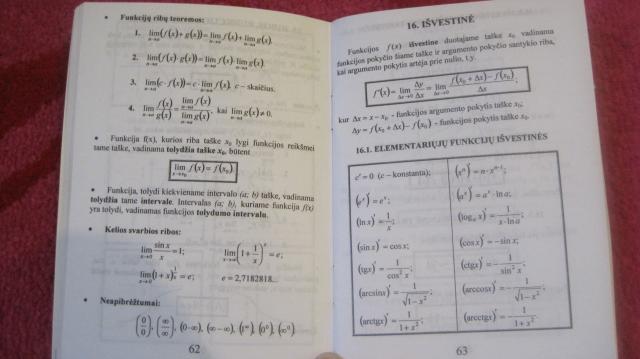 • Funkcijų ribų teoremos:
1. lim(f(x)+g(x))=lim f(x)+lim g(x).
x→a x→a x→a
2. lim(f(x)·g(x))=lim f(x)·lim g(x).
x→a x→a x→a
3. lim(c·f(x))=c·lim f(x), c – skaičius.
x→a x→a
4. lim f(x)/g(x) = lim f(x)/lim g(x), kai lim g(x)≠0.
x→a x→a x→a x→a
• Funkcija f(x), kurios riba taške x₀ lygi funkcijos reikšmei
tame taške, vadinama tolydžia taške x₀, būtent
lim f(x)=f(x₀)
x→x₀
• Funkcija, tolydi kiekviename intervalo (a; b) taške, vadinama
tolydžia tame intervale. Intervalas (a; b), kuriame funkcija f(x)
yra tolydi, vadinamas funkcijos tolydumo intervalu.
• Kelios svarbios ribos:
lim sin x/x = 1; lim(1+1/x)ˣ = e;
x→0 x→∞
lim(1+x)^(1/x) = e; e = 2,7182818...
x→0
• Neapibrėžtumai:
(0/0), (∞/∞), (0·∞), (∞–∞), (1^∞), (0⁰), (∞⁰)
62
16. IŠVESTINĖ
Funkcijos f(x) išvestine duotajame taške x₀ vadinama
funkcijos pokyčio šiame taške ir argumento pokyčio santykio riba,
kai argumento pokytis artėja prie nulio, t.y.
f'(x) = lim Δy/Δx = lim (f(x₀+Δx)–f(x₀))/Δx,
Δx→0 Δx→0
kur Δx = x – x₀ - funkcijos argumento pokytis taške x₀;
Δy = f(x₀ + Δx) – f(x₀) - funkcijos pokytis taške x₀.
16.1. ELEMENTARIŲJŲ FUNKCIJŲ IŠVESTINĖS
c' = 0 (c – konstanta); (xⁿ)' = n·xⁿ⁻¹;
(eˣ)' = eˣ; (aˣ)' = aˣ·ln a;
(ln x)' = 1/x; (logₐ x)' = 1/(x·ln a);
(sin x)' = cos x; (cos x)' = –sin x;
(tgx)' = 1/cos² x; (ctgx)' = –1/sin² x;
(arcsinx)' = 1/√(1–x²); (arccosx)' = –1/√(1–x²);
(arctgx)' = 1/(1+x²); (arcctgx)' = –1/(1+x²).
63